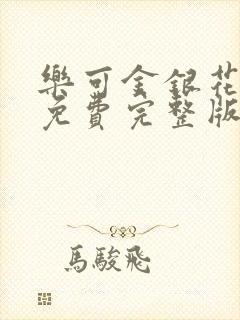 樂可金銀花
免費完整版
馬駿飛